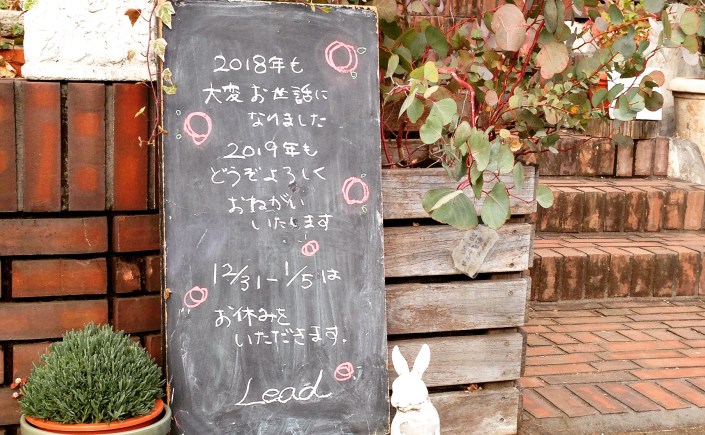 2018年も
大変お世話に
なりました
2019年も
どうぞよろしく
おねがい
いたします
12/31-1/5は
お休みを
いただきます.
Lead